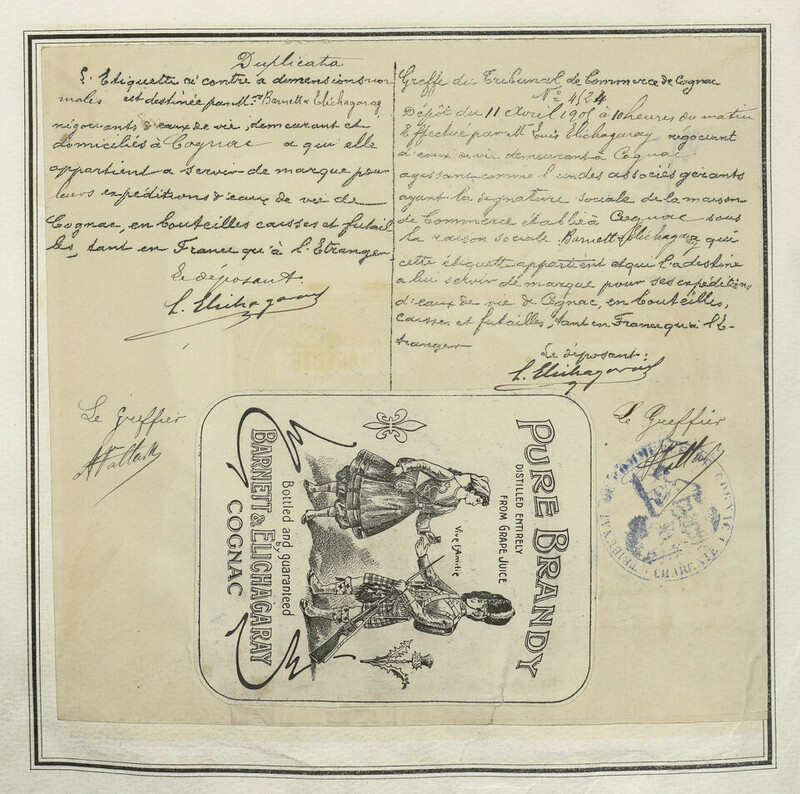 Duplicata
L'Etiquette ci contre a dimensions nor
males est destinée par Mrs Barnett & Elichagaray
négociants d'eaux de vie, demeurant et
domiciliés à Cognac a qui elle
appartient a servir de marque pour
leurs expéditions d'eaux de vie de
Cognac, en bouteilles caisses et futail
les, tant en France qu'à l'Etranger
Le déposant.
L. Elichagaray
Greffe du Tribunal de Commerce de Cognac
No 4124
Dépôt du 11 Avril 1905 à 10 heures du matin
Effectué par Mr Louis Elichagaray négociant
d'eaux de vie demeurant à Cognac
agissant comme l'un des associés gérants
ayant la signature sociale de la maison
de Commerce établie à Cognac sous
la raison sociale Barnett & Elichagaray qui
cette étiquette appartient et qui l'a destine
a lui servir de marque pour ses expéditions
d'eaux de vie de Cognac, en bouteilles,
caisses et futailles, tant en France qu'à l'E-
tranger
Le déposant:
L. Elichagaray
Le Greffier
Le Greffier
PURE BRANDY
DISTILLED ENTIRELY
FROM GRAPE JUICE
Vive l'Amitié
Bottled and guaranteed
by
BARNETT & ELICHAGARAY
COGNAC
TRIBUNAL DE COMMERCE COGNAC
CHARENTE